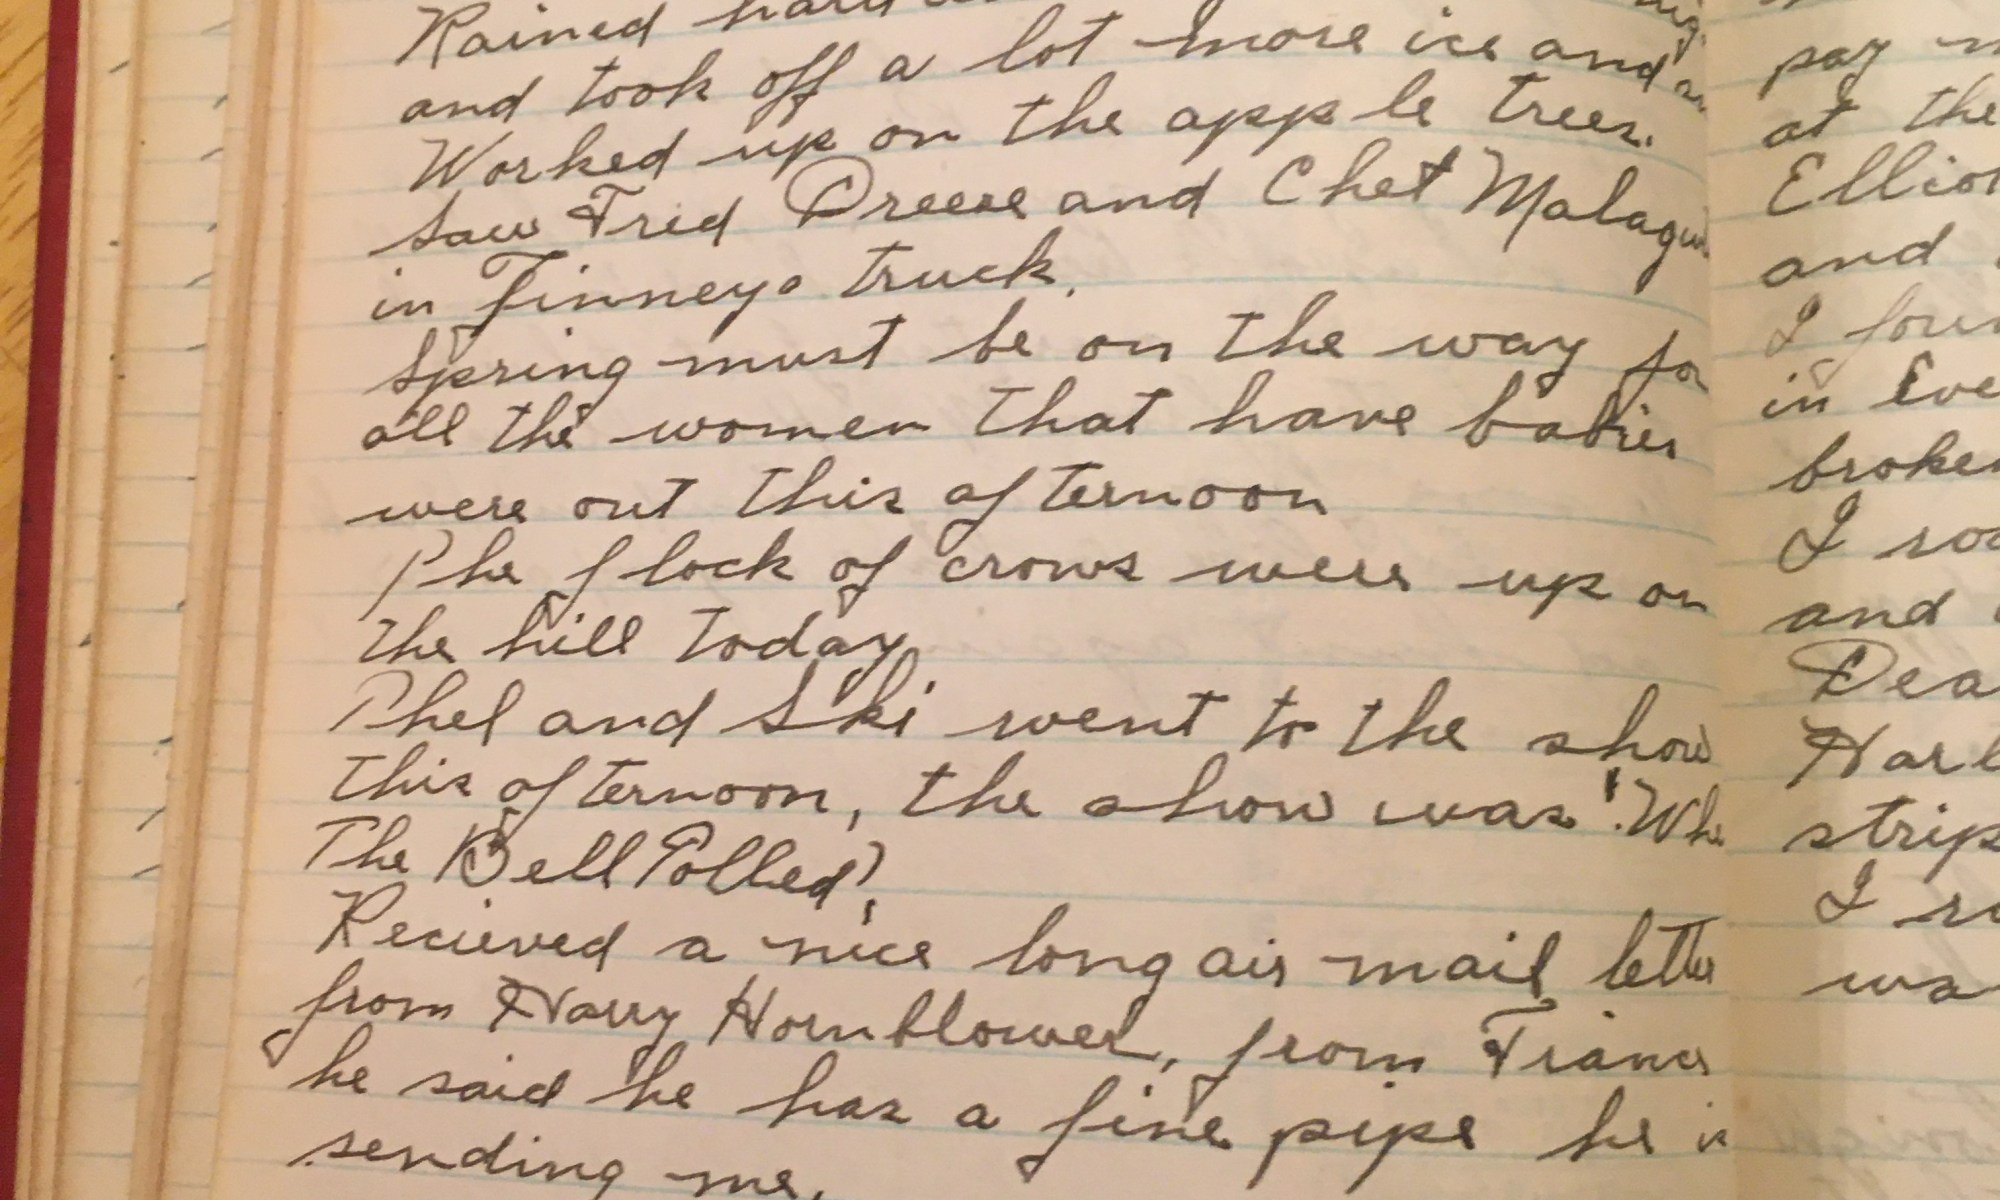 Rained hard
and took off a lot more ice and
Worked up on the apple trees.
Saw Fred Dreese and Chet
in Finneys truck.
Spring must be on the way for
all the women that have babies
were out this afternoon
The flock of crows were up on
the hill today
Phel and Ski went to the show
this afternoon, the show was "
The Bell Tolled",
Recieved a nice long air mail letter
from Harry Hornblower, from
he said he has a fine pipe he is
sending me.
pay
at the
and
I
in
I
and
I